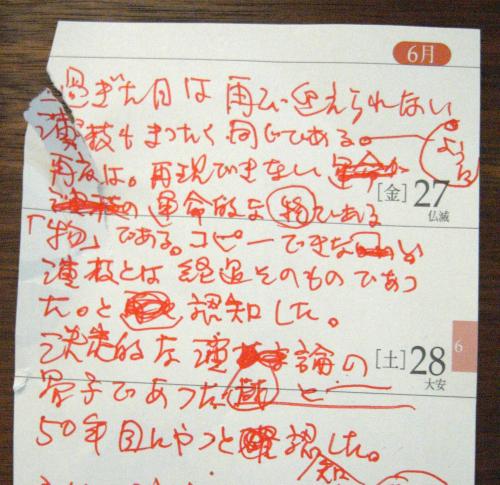 6月
過ぎた日は再び迎えられない
演技もまったく同じである。
ように
再度は。再現できない
の運命的な物である
[金]27
仏滅
「物」である。コピーできない
演技とは経過そのものであっ
た。と認知した。
6
決定的な演論の
[土]28
大安
骨子であった と
50年目にやっと認した。
知